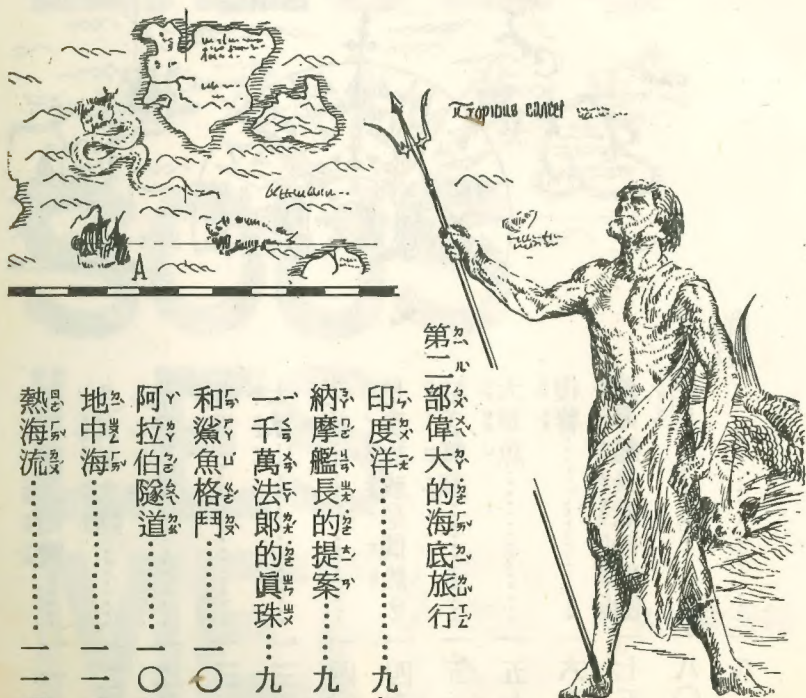 Tropicus cancer
A
第二部偉大的海底旅行
印度洋……九
納摩艦長的提案……九
一千萬法郎的眞珠…九
和鯊魚格鬥……一〇
阿拉伯隧道……一〇
地中海……一一
熱海流……一一